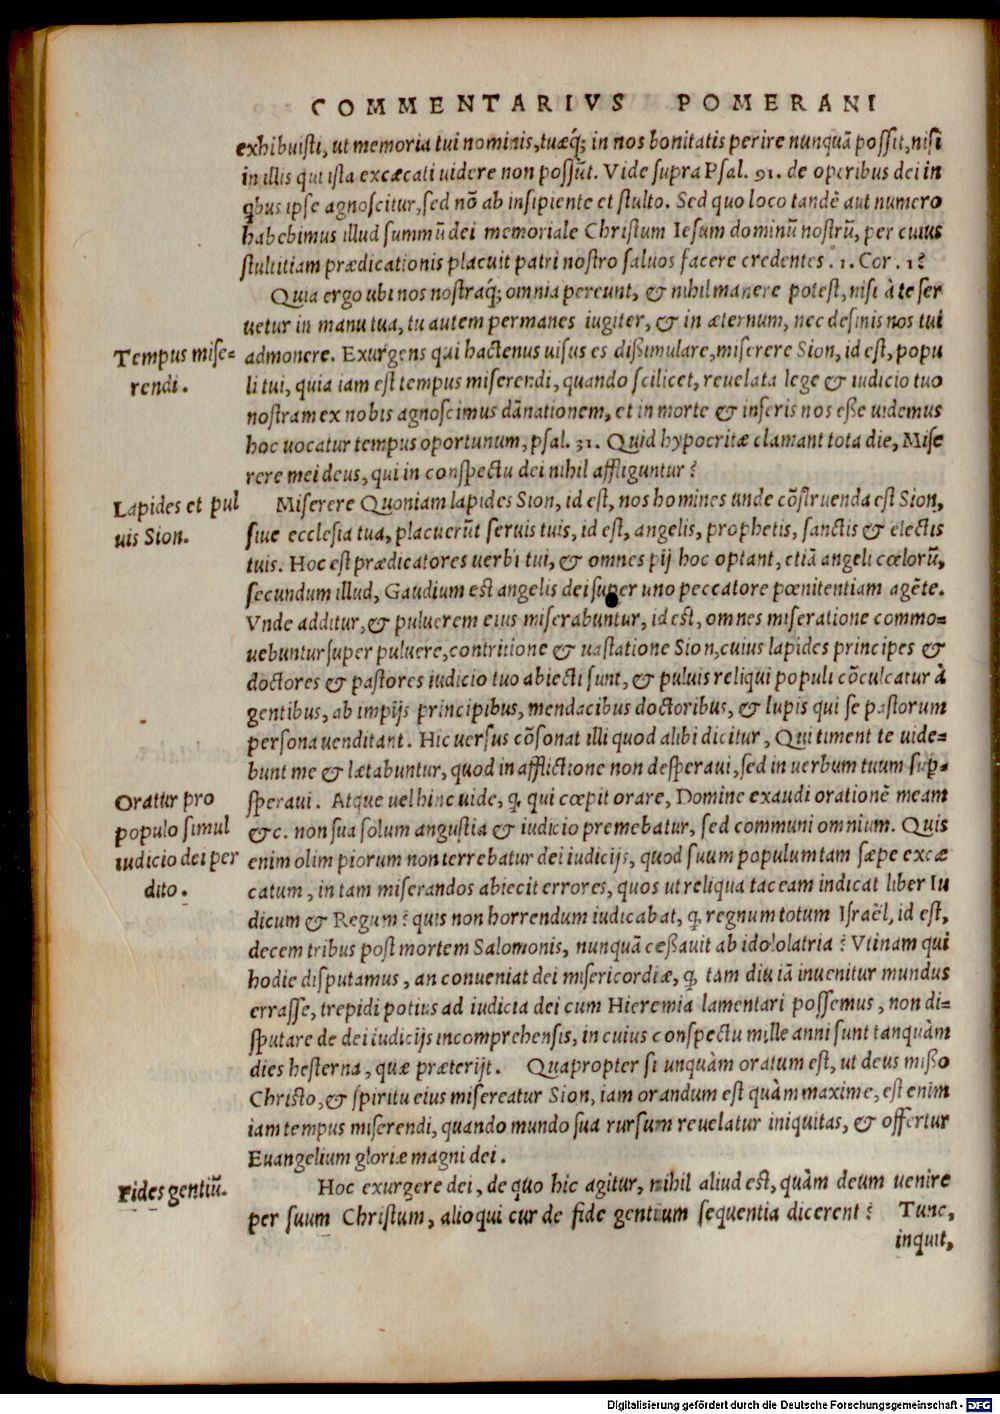 COMMENTARIVS POMERANI
exhibuisti, ut memoria tui nominis, tuæq́; in nos bonitatis perire nunquã possit, nisi
in illis qui ista excæcati uidere non possũt. Vide supra Psal. 91. de operibus dei in
q̃bus ipse agnoscitur, sed nõ ab insipiente et stulto. Sed quo loco tandẽ aut numero
habebimus illud summũ dei memoriale Christum Iesum dominũ nostrũ, per cuius
stultitiam prædicationis placuit patri nostro saluos facere credentes. 1. Cor. 1?
Quia ergo ubi nos nostraq́; omnia pereunt, & nihil manere potest, nisi à te ser
uetur in manu tua, tu autem permanes iugiter, & in æternum, nec desinis nos tui
Tempus mise=
rendi.
admonere. Exurgens qui hactenus uisus es dißimulare, miserere Sion, id est, popu
li tui, quia iam est tempus miserendi, quando scilicet, reuelata lege & iudicio tuo
nostram ex nobis agnoscimus dãnationem, et in morte & inferis nos eße uidemus
hoc uocatur tempus oportunum, psal. 31. Quid hypocritæ clamant tota die, Mise
rere mei deus, qui in conspectu dei nihil affliguntur?
Lapides et pul
uis Sion.
Miserere Quoniam lapides Sion, id est, nos homines unde cõstruenda est Sion,
siue ecclesia tua, placuerũt seruis tuis, id est, angelis, prophetis, sanctis & electis
tuis. Hoc est prædicatores uerbi tui, & omnes pij hoc optant, etiã angeli cœlorũ,
secundum illud, Gaudium est angelis dei super uno peccatore pœnitentiam agẽte.
Vnde additur, & puluerem eius miserabuntur, id est, omnes miseratione commo=
uebuntur super puluere, contritione & uastatione Sion, cuius lapides principes &
doctores & pastores iudicio tuo abiecti sunt, & puluis reliqui populi cõculcatur à
gentibus, ab impijs principibus, mendacibus doctoribus, & lupis qui se pastorum
persona uenditant. Hic uersus cõsonat illi quod alibi dicitur, Qui timent te uide=
bunt me & lætabuntur, quod in afflictione non desperaui, sed in uerbum tuum sup̱=
Oratur pro
populo simul
iudicio dei per
dito.
speraui. Atque uel hinc uide, q̃ qui cœpit orare, Domine exaudi orationẽ meam
&c. non sua solum angustia & iudicio premebatur, sed communi omnium. Quis
enim olim piorum non terrebatur dei iudicijs, quod suum populum tam sæpe excæ
catum, in tam miserandos abiecit errores, quos ut reliqua taceam indicat liber Iu
dicum & Regum? quis non horrendum iudicabat, q̃ regnum totum Israël, id est,
decem tribus post mortem Salomonis, nunquã ceßauit ab idololatria? Vtinam qui
hodie disputamus, an conueniat dei misericordiæ, q̃ tam diu iã inuenitur mundus
errasse, trepidi potius ad iudicia dei cum Hieremia lamentari possemus, non di=
sputare de dei iudicijs incomprehensis, in cuius conspectu mille anni sunt tanquàm
dies hesterna, quæ præterijt. Quapropter si unquàm oratum est, ut deus mißo
Christo, & spiritu eius misereatur Sion, iam orandum est quàm maxime, est enim
iam tempus miserendi, quando mundo sua rursum reuelatur iniquitas, & offertur
Euangelium gloriæ magni dei.
Fides gentiũ.
Hoc exurgere dei, de quo hic agitur, nihil aliud est, quàm deum uenire
per suum Christum, alioqui cur de fide gentium sequentia dicerent? Tunc,
inquit,
Digitalisierung gefördert durch die Deutsche Forschungsgemeinschaft - DFG